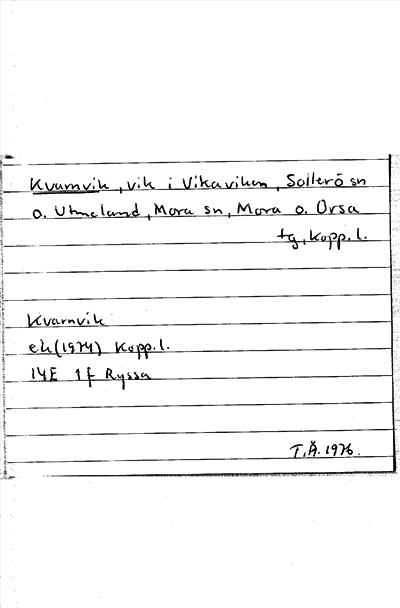 Kvarnvik, vik i Vikaviken, Sollerö sn
o. Utmeland, Mora sn, Mora o. Orsa
tg, Kopp.l.
Kvarnvik
ek(1974) Kopp.l.
14E 1f Ryssa
T.Å. 1976.